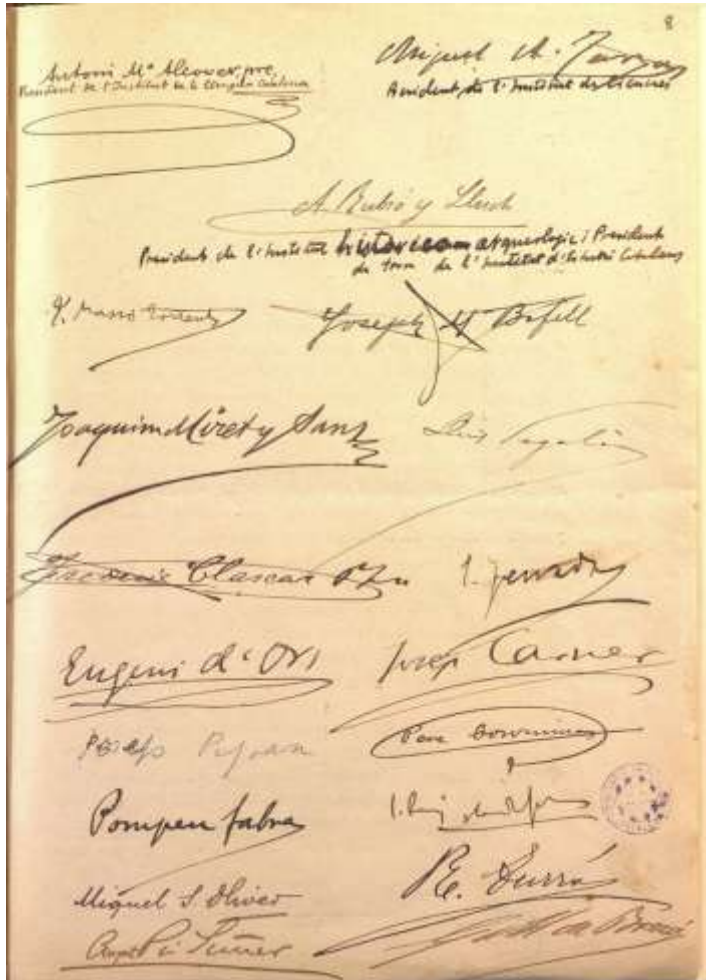 8
Antoni Mª Alcover, pre,
President de l'Institut de la Llengua Catalana
Miquel A.
President, de l'Institut de Ciencies
A. Rubió y Lluch
President de l'Institut historicom arqueologic i President
de torn de l'Institut d'Estudis Catalans
J. Massó Torrents
Joseph M Bofill
Joaquim Miret y Sans
Lluis Segalá
Frederic Clascar
Eugeni d'Ors
Josep Carner
Pere Corominas
Pompeu fabra
Miquel S. Oliver
R. Turró
August Pi Suñer